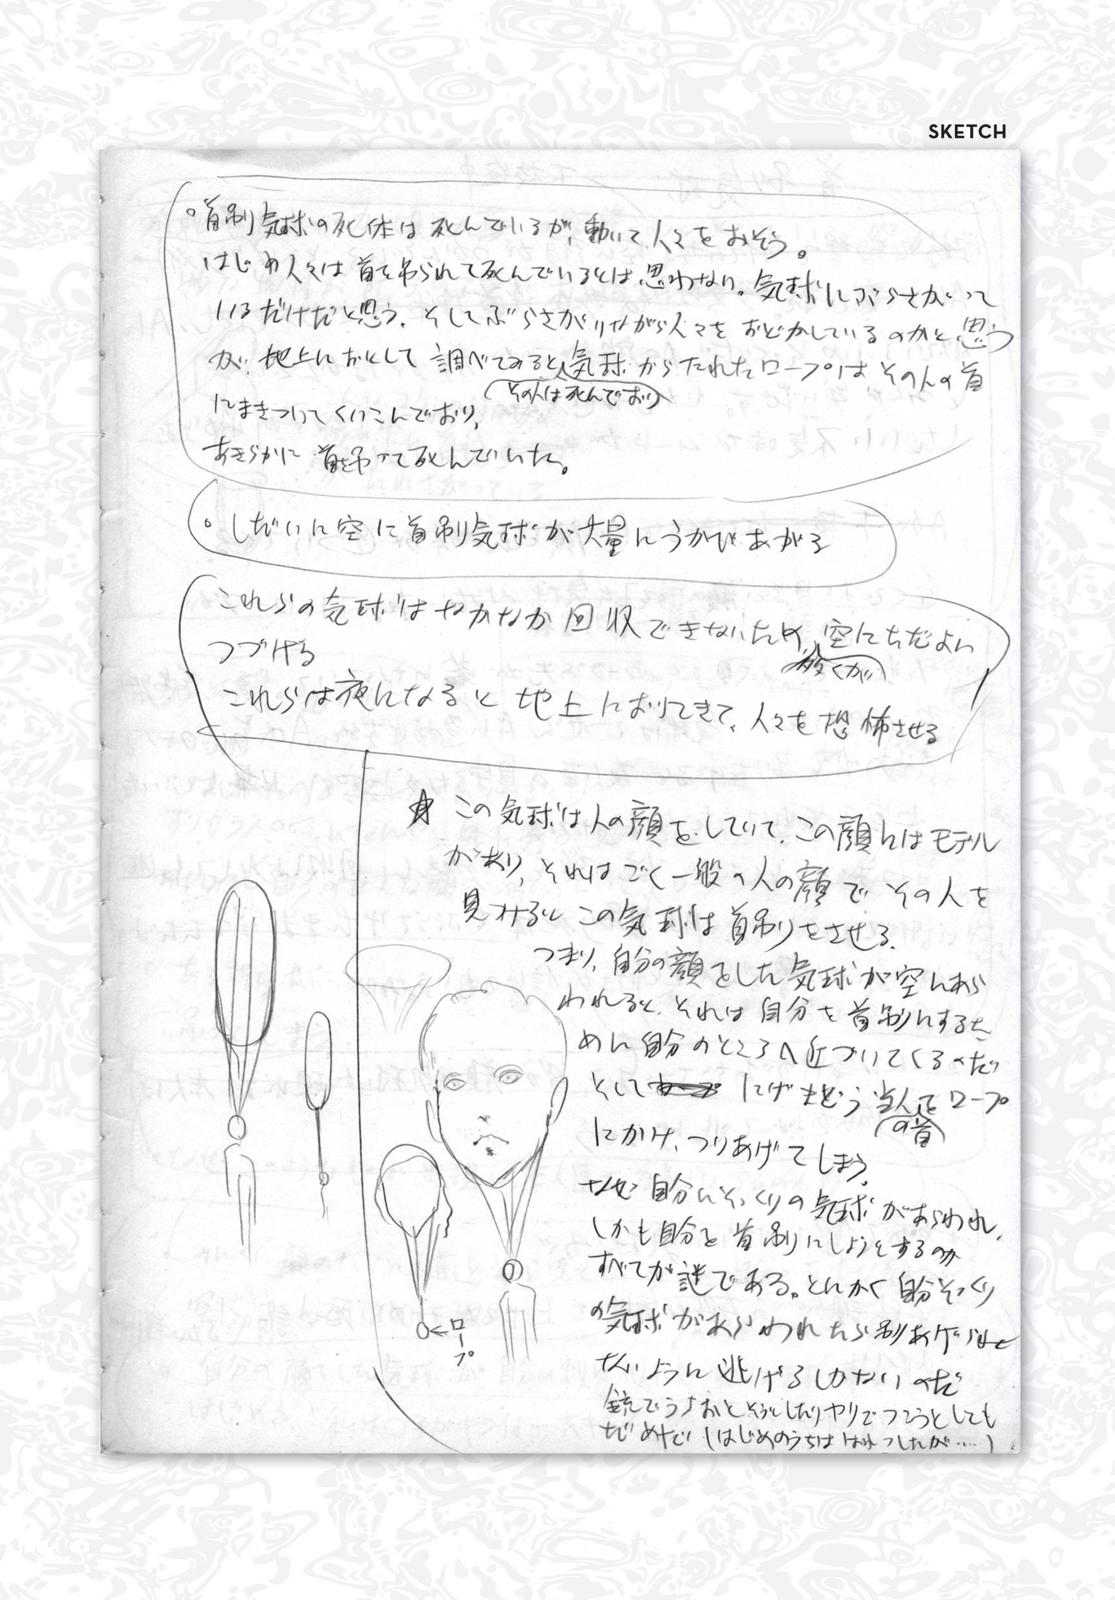 SKETCH
○首吊気球の死体は死んでいるが、動いて人々をおそう。
はじめ人々は首を吊られて死んでいるとは思わない。気球にぶらさがって
いるだけだと思う。そしてぶらさがりながら人々をおどかしているのかと思う
が、地上におとして調べてみると、気球からたれたロープは、その人の首
(その人は死んでおり)
にまきついてくいこんでおり、
あきらかに首を吊って死んでいた。
○しだいに空に首吊気球が大量にうかびあがる
これらの気球はなかなか回収できないため、空にただよい
つづける
これらは夜になると地上におりてきて、人々を恐怖させる
☆この気球は人の顔をしていて、この顔にはモデル
があり、それはごく一般の人の顔でその人を
見つけるとこの気球は首吊りをさせる。
つまり、自分の顔をした気球が空にあら
われると、それは自分を首吊りにするた
めに自分のところへ近づいてくるのだ
として にげまどう当人をロープ
の首
にかけ、つりあげてしまう。
なぜ自分にそっくりの気球があらわれ、
しかも自分を首吊りにしようとするのか
すべてが謎である。とにかく自分そっくり
の気球があらわれたら吊りあげられ
ないように逃げるしかないのだ
銃でうちおとそうとしたりヤリでつこうとしても
だめだ(はじめのうちは
ロープ